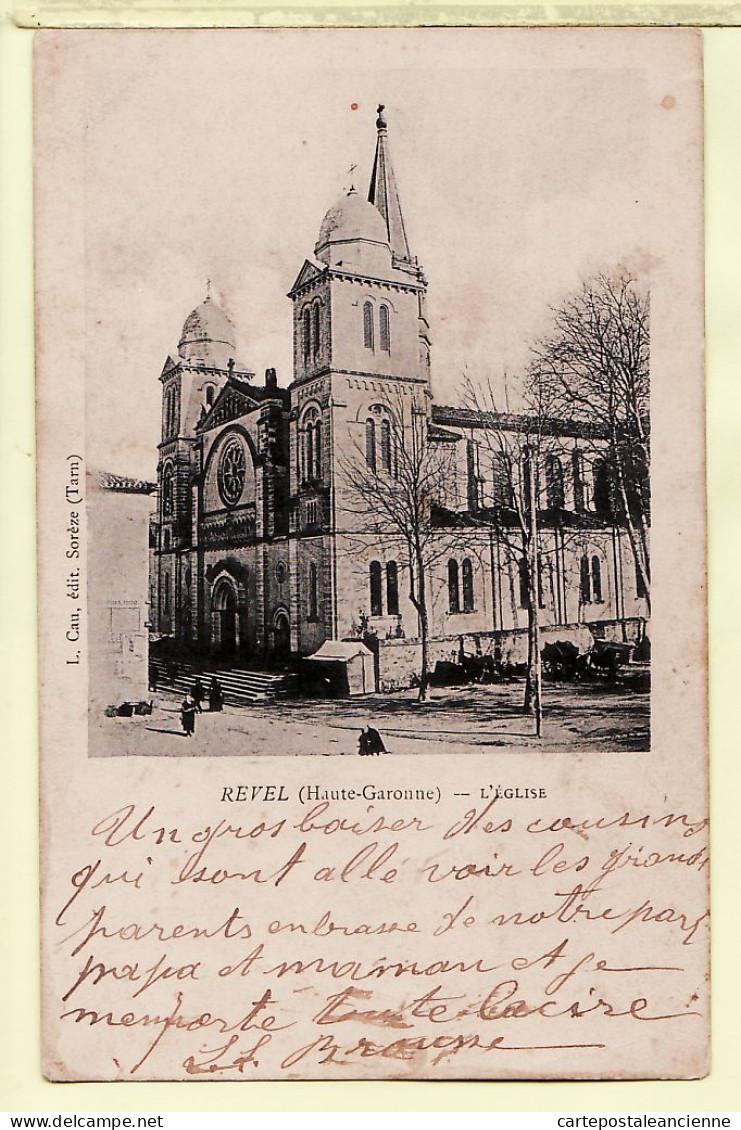 L. Cau, édit. Sorèze (Tarn)
REVEL (Haute-Garonne) — L'ÉGLISE
Un gros baiser des cousins
qui sont allé voir les grands
parents enbrasse de notre part
papa et maman et je
memporte toute la cire
delcampe.net
cartepostaleancienne